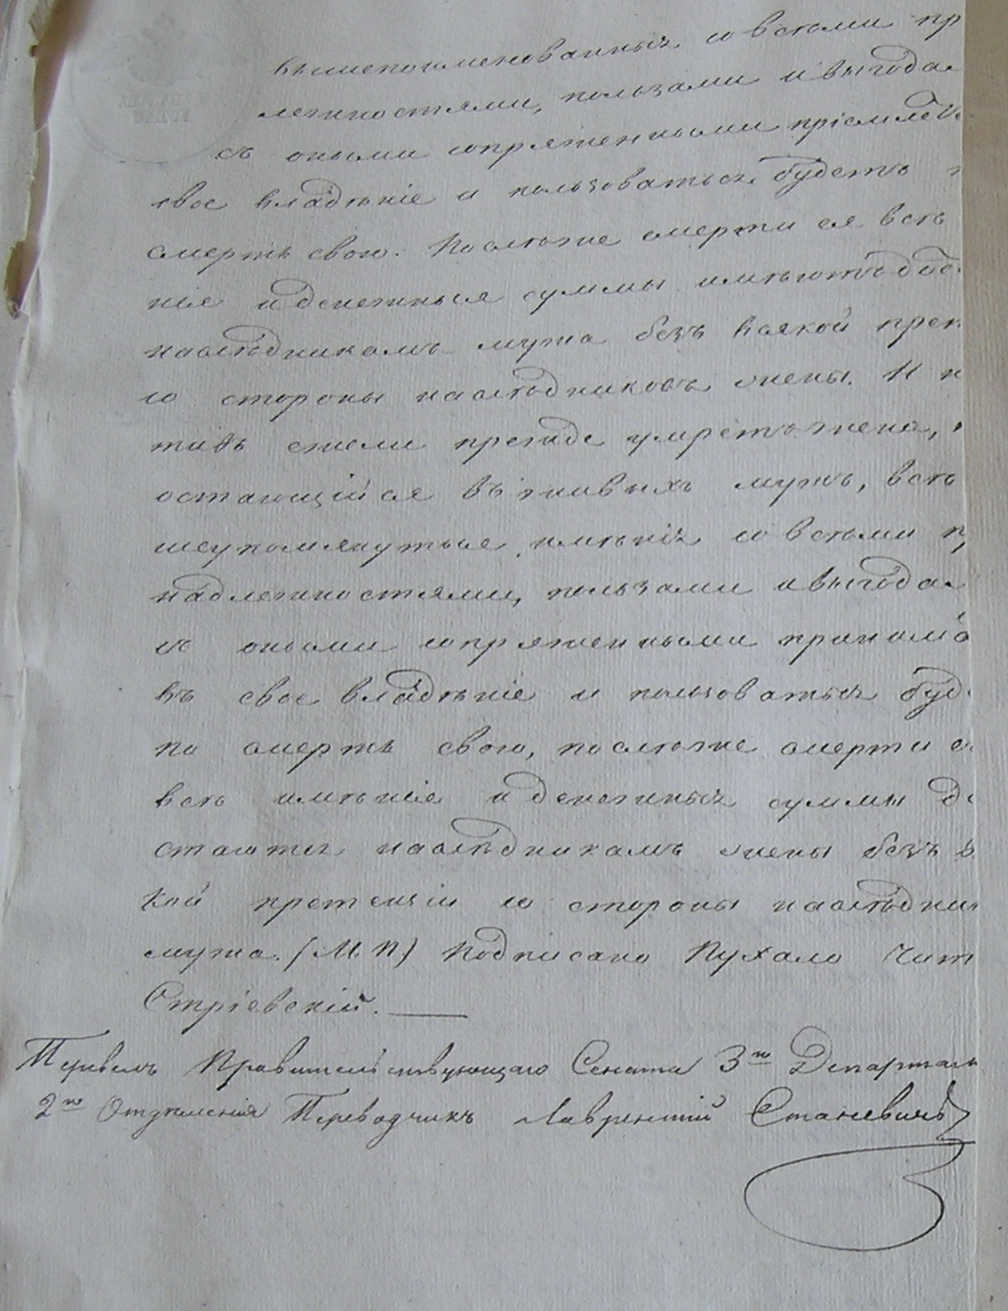 вышепоименованныя со всѣми пр
лежностями, пользами и выгода
съ оными сопряженными пріемлетъ
свое владѣніе и пользоваться будетъ
смерть свою. Послѣже смерти ея всѣ
нія и денежныя суммы имѣютъ дос
наслѣдникамъ мужа безъ всякой прет
со стороны наслѣдниковъ жены. И н
тивъ ежели прежде умретъ жена,
остающійся въ живыхъ мужъ, всѣ
шеупомянутыя имѣнія со всѣми пр
надлежностями, пользами и выгода
съ оными сопряженными принима
въ свое владѣніе и пользоваться буд
по смерть свою, послѣже смерти е
всѣ имѣнія и денежныя суммы до
стаются наслѣдникамъ жены безъ в
кой претенціи со стороны наслѣдни
мужа. (М. П) Подписано Пухало Чит
Стріевскій.
Перевелъ Правительствующаго Сената 3го Департам
2го Отдѣленія Переводчикъ Лаврентій Станевичъ